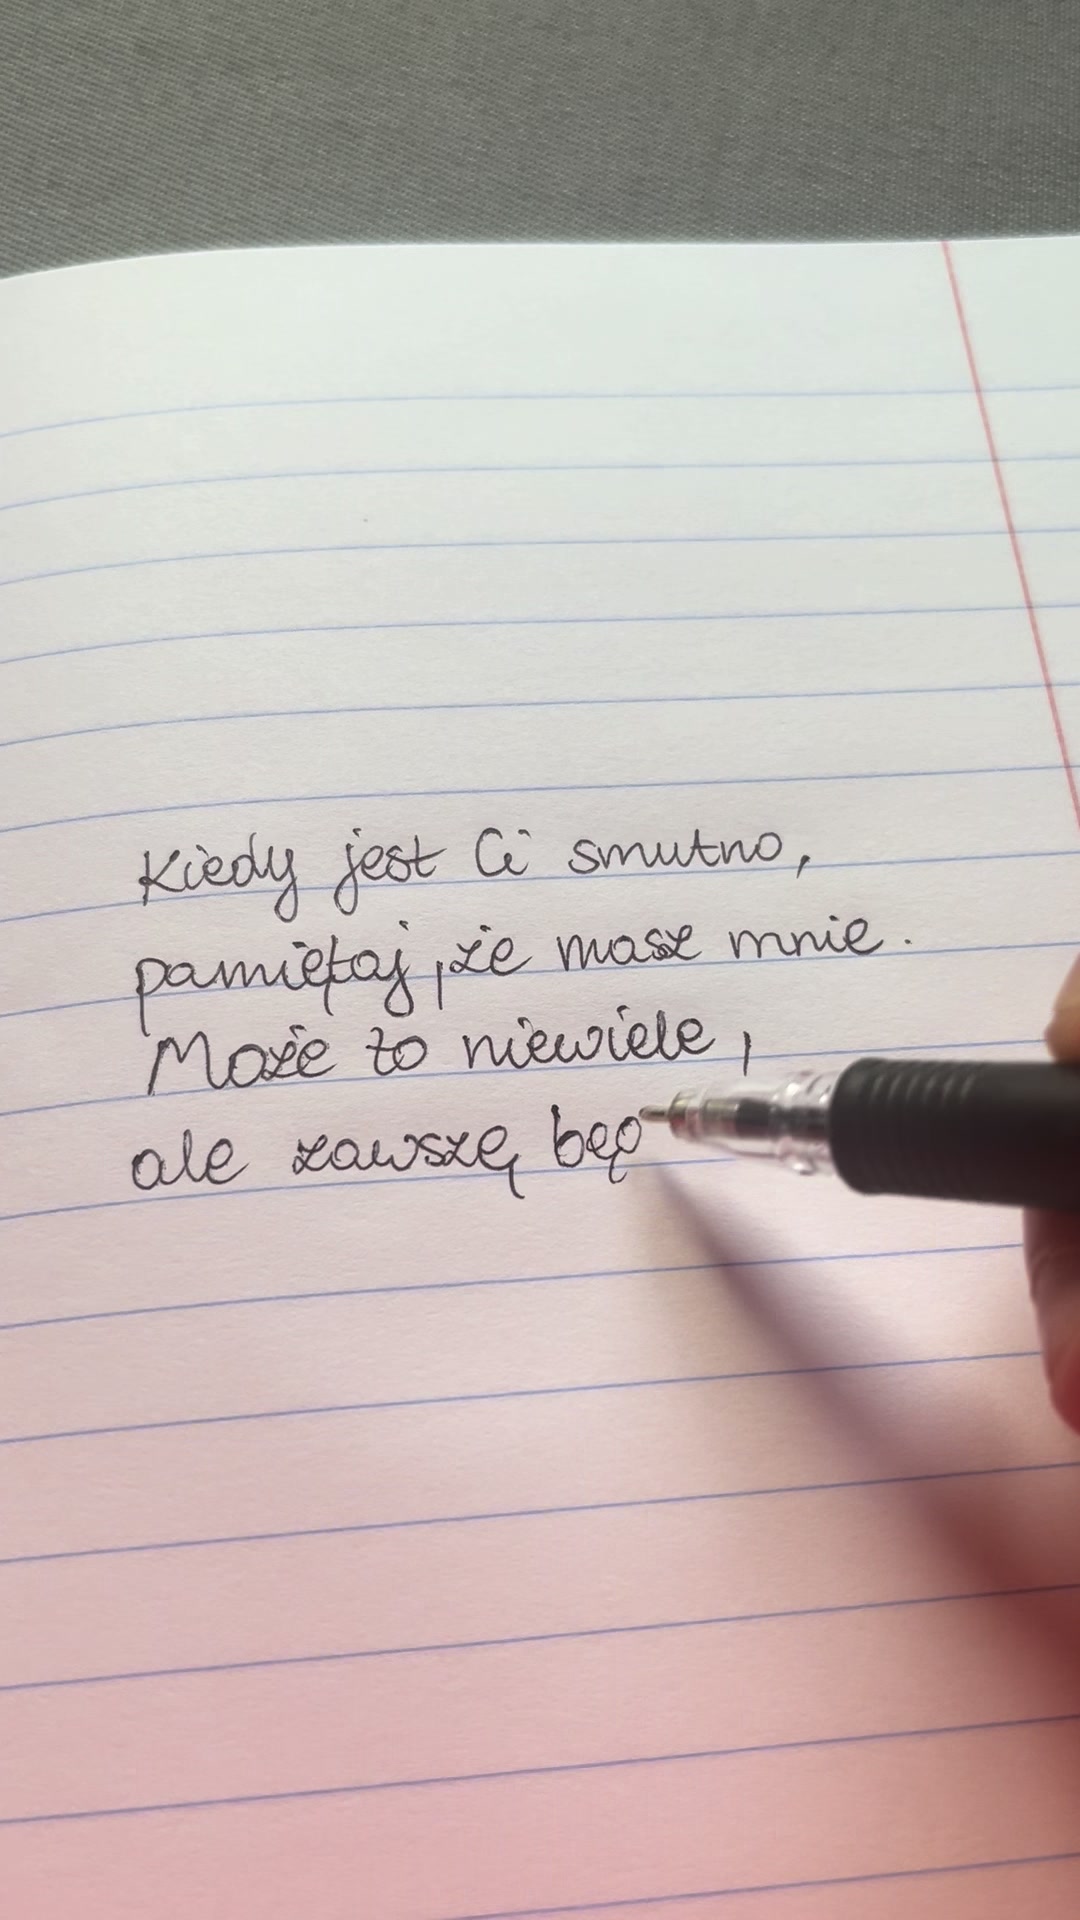 Kiedy jest Ci smutno,
pamiętaj, że masz mnie.
Może to niewiele,
ale zawszę bęo